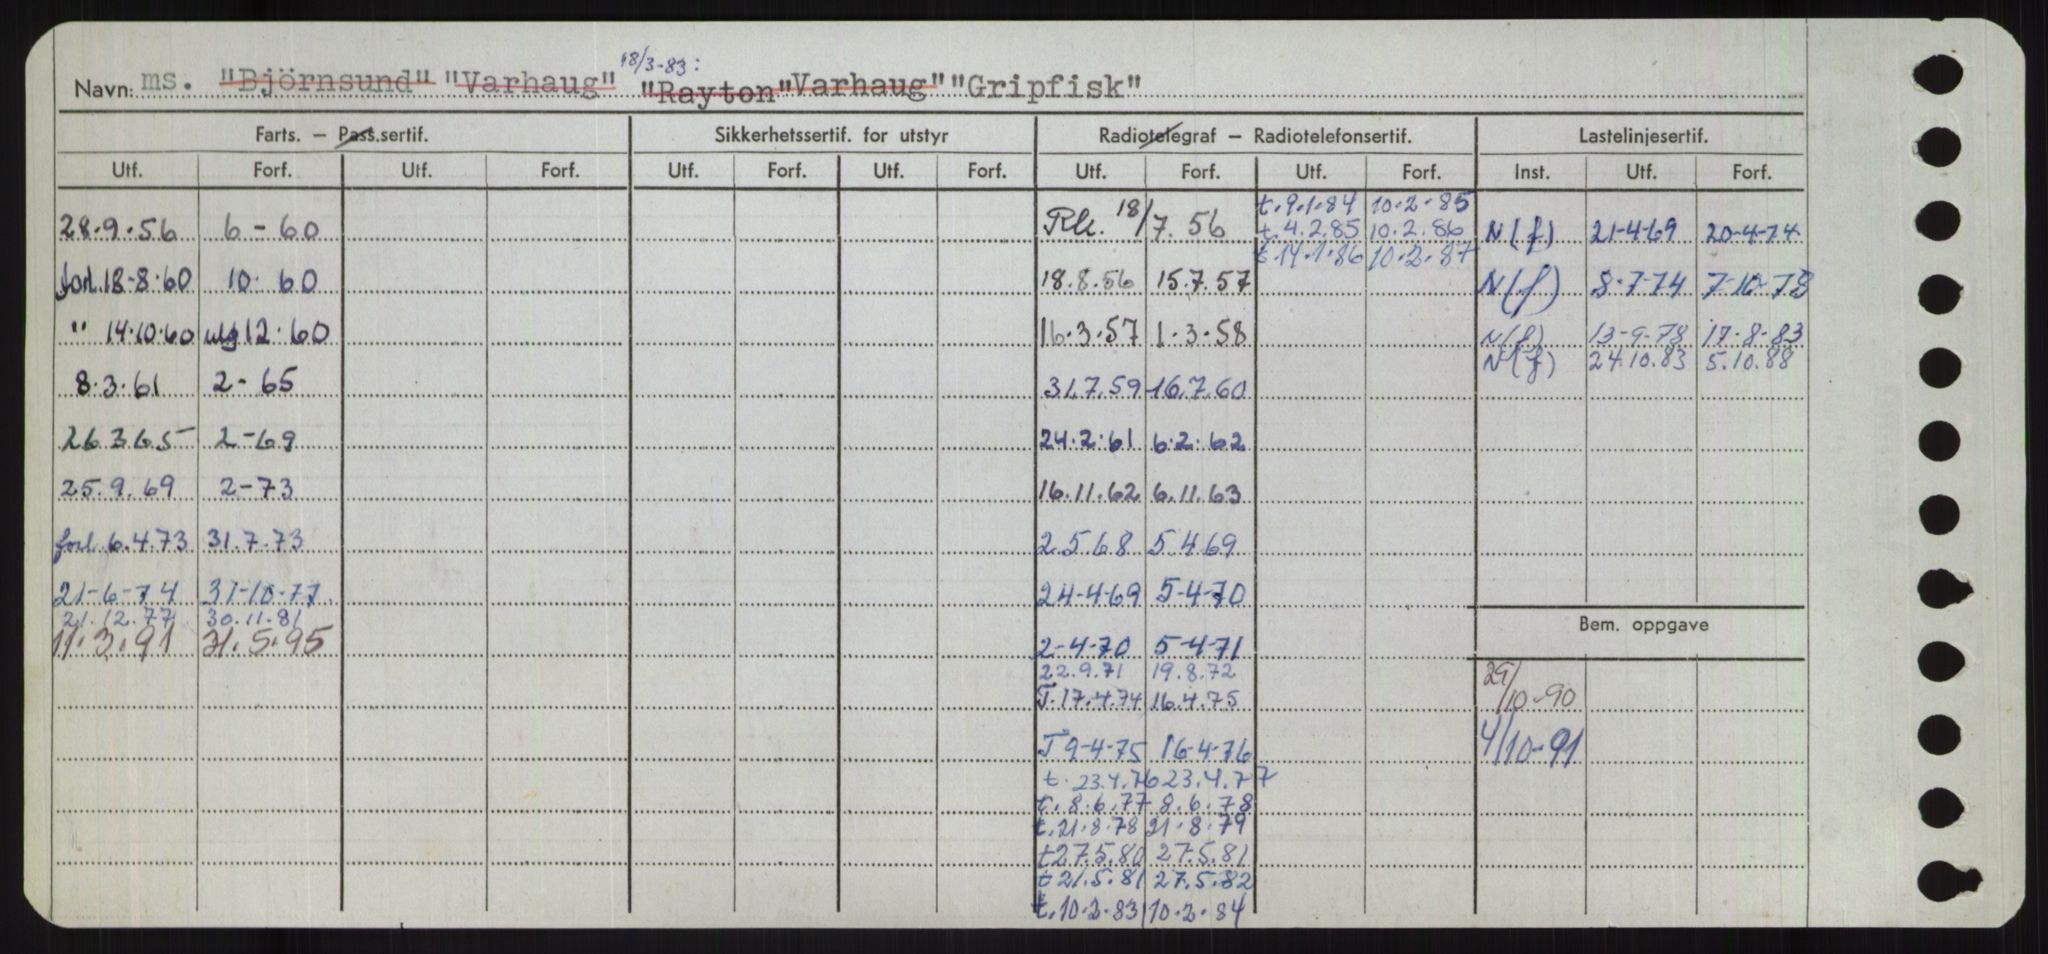 18/3-83:
Navn: ms. "Björnsund" "Varhaug" "Rayton" "Varhaug" "Gripfisk"
Farts. — Pass.sertif. Sikkerhetssertif. for utstyr Radiotelegraf — Radiotelefonsertif. Lastelinjesertif.
Utf. Forf. Utf. Forf. Utf. Forf. Utf. Forf. Utf. Forf. Utf. Forf. Inst. Utf. Forf.
t.9.1.84 10.2.85
28.9.56 6-60 Rk. 18/7.56 t.4.2.85 10.2.86 N(f) 21-4-69 20-4-74
t.14.1.86 10.2.87
forl.18-8.60 10.60 18.8.56 15.7.57 N(f) 8-7-74 7-10-78
" 14.10.60 utg 12.60 16.3.57 1.3.58 N(f) 13-9-78 17-8-83
N(f) 24.10.83 5.10.88
8.3.61 2-65 31.7.59 16.7.60
26.3.65 2-69 24.2.61 6.2.62
25.9.69 2-73 16.11.62 6.11.63
forl.6.4.73 31.7.73 2.5.68 5.4.69
21-6-74 31-10-77. 24-4-69 5-4-70
21.12.77 30.11.81
Bem. oppgave
11.3.91 31.5.95 2-4-70 5-4-71
22.9.71 19.8.72
T.17.4.74 16.4.75 29/10-90
T 9-4-75 16-4-76 4/10-91
t. 23.4.76 23.4.77
t. 8.6.77 8.6.78
t.21.8.78 21.8.79
t 27.5.80 27.5.81
t 21.5.81 27.5.82
t.10.2.83 10.2.84